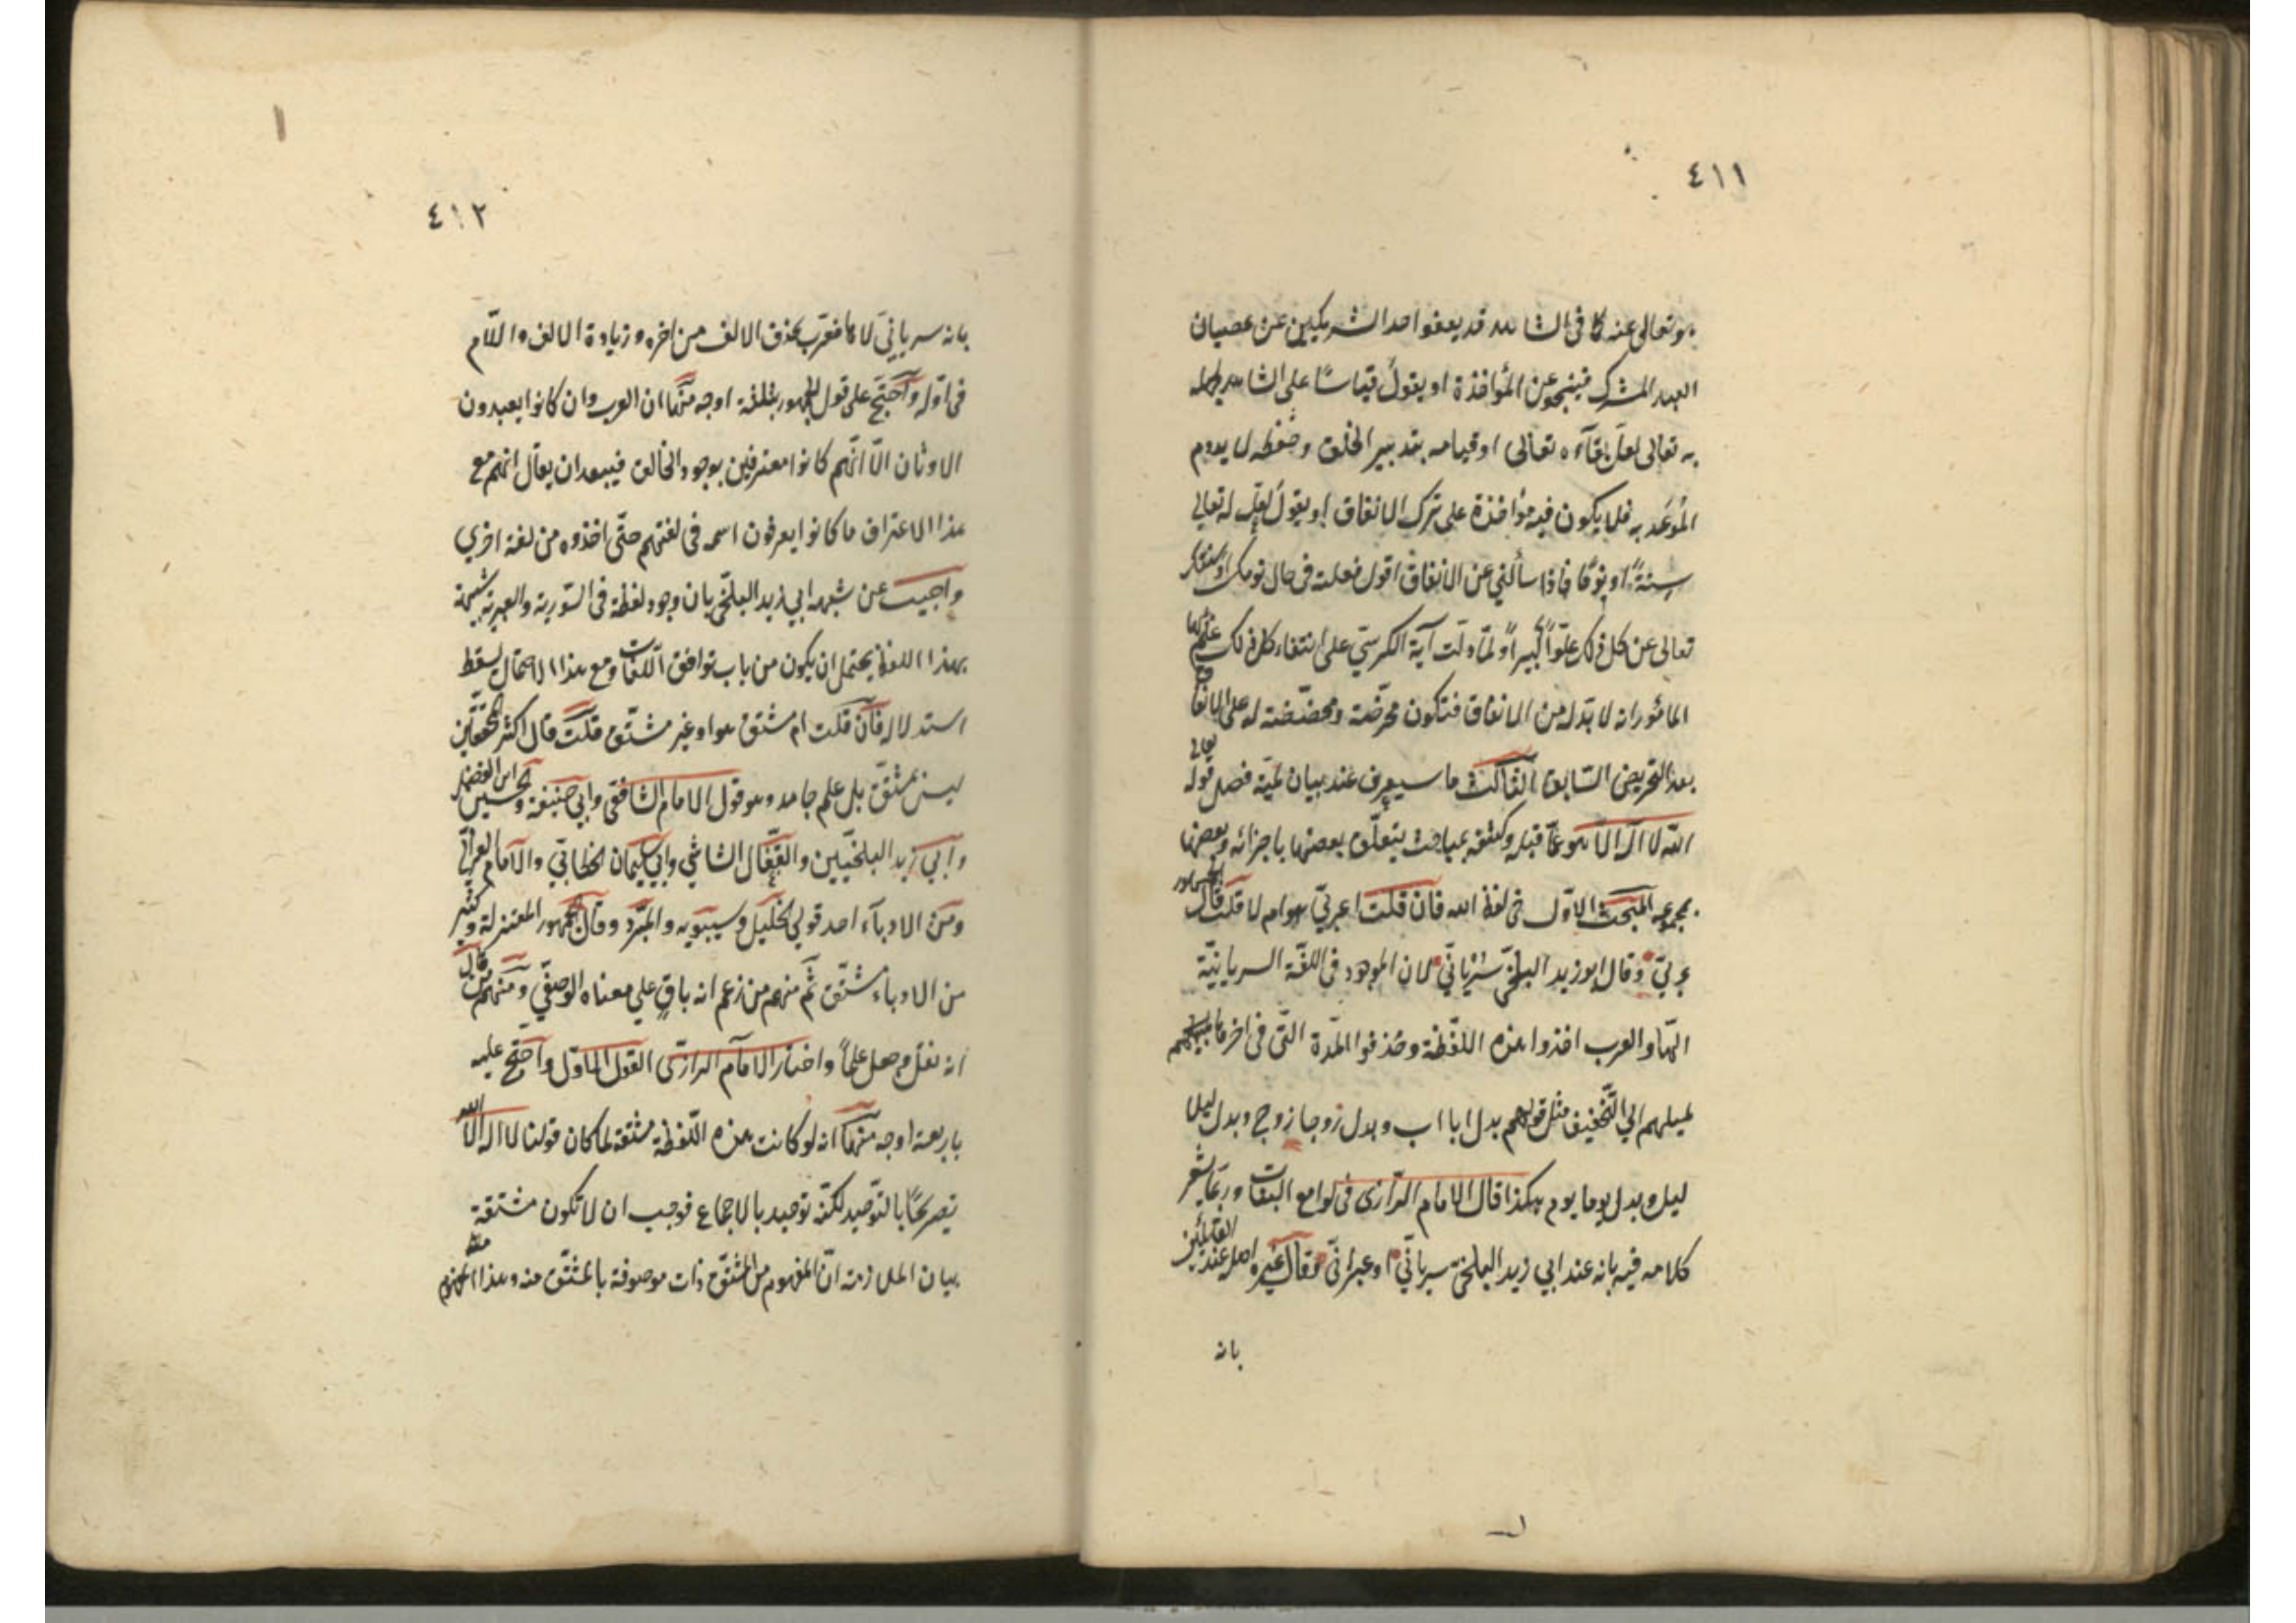 ٤١١
هو تعالى عنه كما في الشاهد قد يعفو احد الشريكين عن عصيان
العبد المشترك فينجو عن المؤاخذة او يقول قياسًا على الشاهد
به تعالى لعل بقآءه تعالى او قيامه بتدبير الخلق وحفظه لا يدوم
الموعد به فلا يكون فيه مؤاخذة على ترك الانفاق او يقول لعل له تعالى
سنةً او نومًا فاذا سألني عن الانفاق اقول فعلت في حال نومك
تعالى عن كل ذلك علوّاً كبيراً ولمّا دلت آية الكرسيّ على انتفاء كل ذلك علم
المأمور انه لا بدّ له من الانفاق فتكون محرّضة ومحضّضة له على الانفاق
بعد التحريض السّابق الثّالث ما سيعرف عند بيان لميّة فصل قوله تعالى
الله لا اله الا هو عمّا قبله وكيفية مباحث يتعلّق بعضها باجزائه وبعضها
بمجموعه المبحث الاوّل في لفظ الله فان قلت اعربيّ هو ام لا قلت قال الجمهور
عربيّ وقال ابو زيد البلخيّ سريانيّ لان الموجود في اللغة السريانيّة
الٓها والعرب اخذوا هذه اللّفظة وحذفوا المدّة الّتي في اخرها
لميلهم الى التّخفيف مثل قولهم بدل ابا اب وبدل زوجا زوج وبدل ليلا
ليل وبدل يوما يوم هكذا قال الامام الرّازى في لوامع البيّنات وربّما يشعر
كلامه فيه بانه عند ابي زيد البلخيّ سريانيّ او عبرانيّ وقال غيره اصله عند القائلين
بانه
٤١٢
بانه سريانيّ لاها فعرّب بحذف الالف من اخره وزيادة الالف واللّام
في اوّله واحتجّ على قول الجمهور بثلثة اوجه منها ان العرب وان كانوا يعبدون
الاوثان الّا انّهم كانوا معترفين بوجود الخالق فيبعد ان يقال انّهم مع
هذا الاعتراف ما كانوا يعرفون اسمه في لغتهم حتّى اخذوه من لغة اخرى
واجيب عن شبهة ابي زيد البلخيّ بان وجود لفظة في السّورية والعبرية شبيهة
بهذا اللفظ يحتمل ان يكون من باب توافق اللّغات ومع هذا الاحتمال يسقط
استدلاله فان قلت ام مشتق هو او غير مشتّق قلت قال اكثر المحققين
ليس بمشتقّ بل علم جامد وهو قول الامام الشّافعي وابي حنيفة والحسين ابن الفضل
وابي زيد البلخيّين والقفّال الشاشي وابي سليمان الخطابيّ والامام الغزالي
ومن الادبآء احد قولي الخليل وسيبويه والمبرّد وقال جمهور المعتزلة وكثير
من الادباء مشتّق ثمّ منهم من زعم انه باقٍ على معناه الوصفّي ومنهم من قال
انه نقل وجعل علماً واختار الامام الرازى القول الاوّل واحتّج عليه
باربعة اوجه منها انه لو كانت هذه اللّفظة مشتقة لما كان قولنا لا اله الّا الله
تصريحًا بالتّوحيد لكنّه توحيد بالاجماع فوجب ان لا تكون مشتقة
بيان الملازمة انّ المفهوم من المشتقّ ذات موصوفة بالمشتّق منه وهذا المفهوم